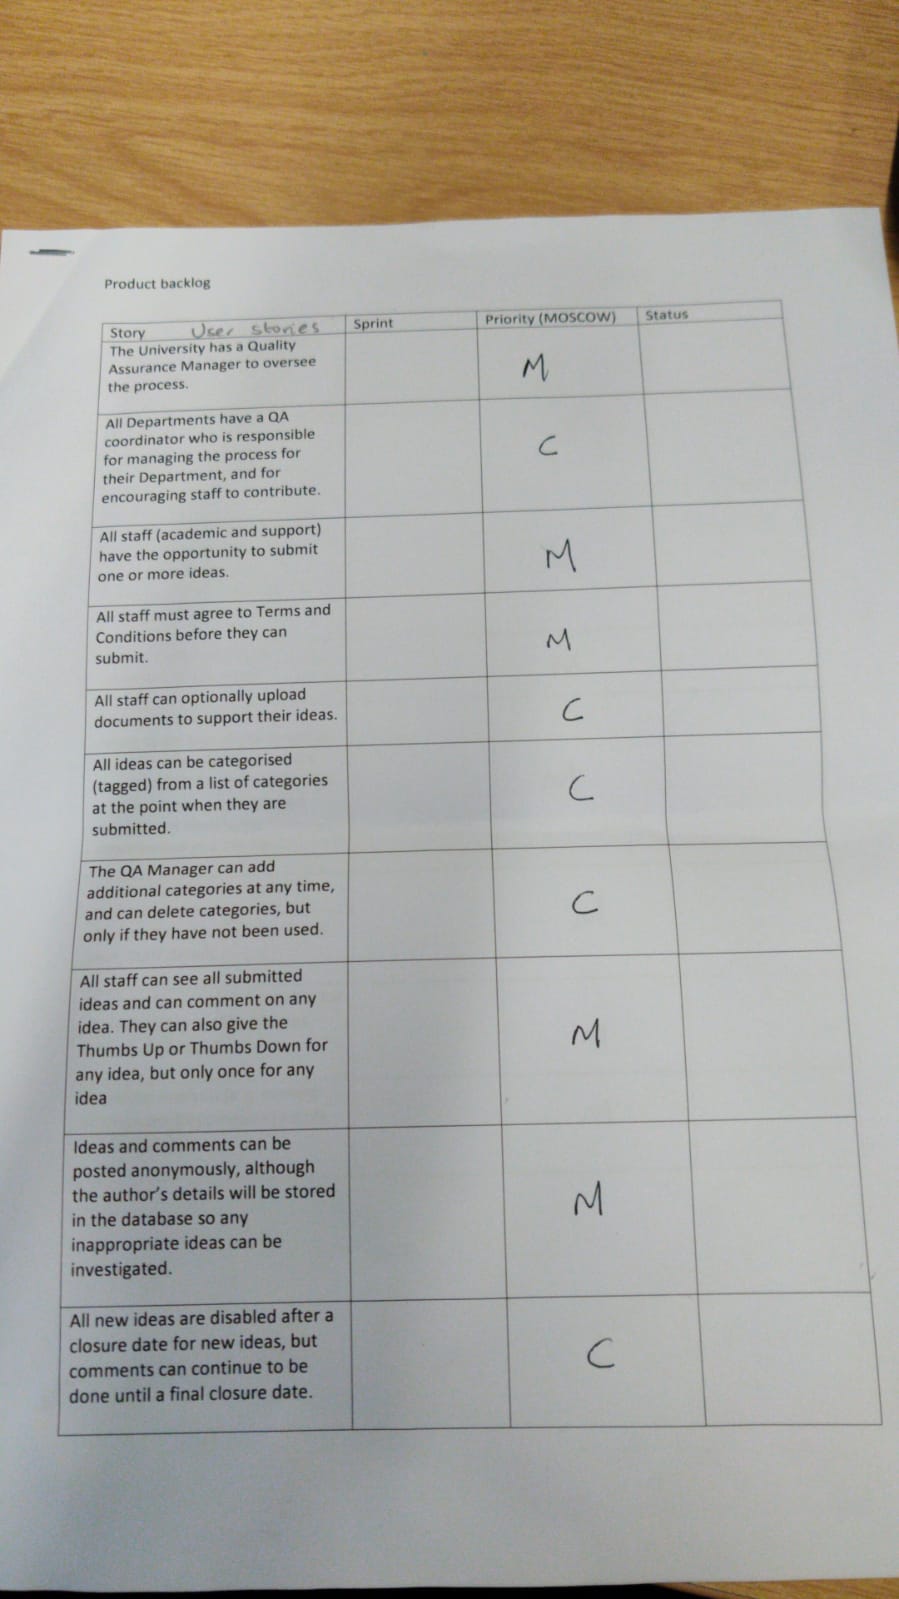 Product backlog
Story User stories Sprint Priority (MOSCOW) Status
The University has a Quality
Assurance Manager to oversee
the process.
M
All Departments have a QA
coordinator who is responsible
for managing the process for
their Department, and for
encouraging staff to contribute.
C
All staff (academic and support)
have the opportunity to submit
one or more ideas.
M
All staff must agree to Terms and
Conditions before they can
submit.
M
All staff can optionally upload
documents to support their ideas.
C
All ideas can be categorised
(tagged) from a list of categories
at the point when they are
submitted.
C
The QA Manager can add
additional categories at any time,
and can delete categories, but
only if they have not been used.
C
All staff can see all submitted
ideas and can comment on any
idea. They can also give the
Thumbs Up or Thumbs Down for
any idea, but only once for any
idea
M
Ideas and comments can be
posted anonymously, although
the author's details will be stored
in the database so any
inappropriate ideas can be
investigated.
M
All new ideas are disabled after a
closure date for new ideas, but
comments can continue to be
done until a final closure date.
C